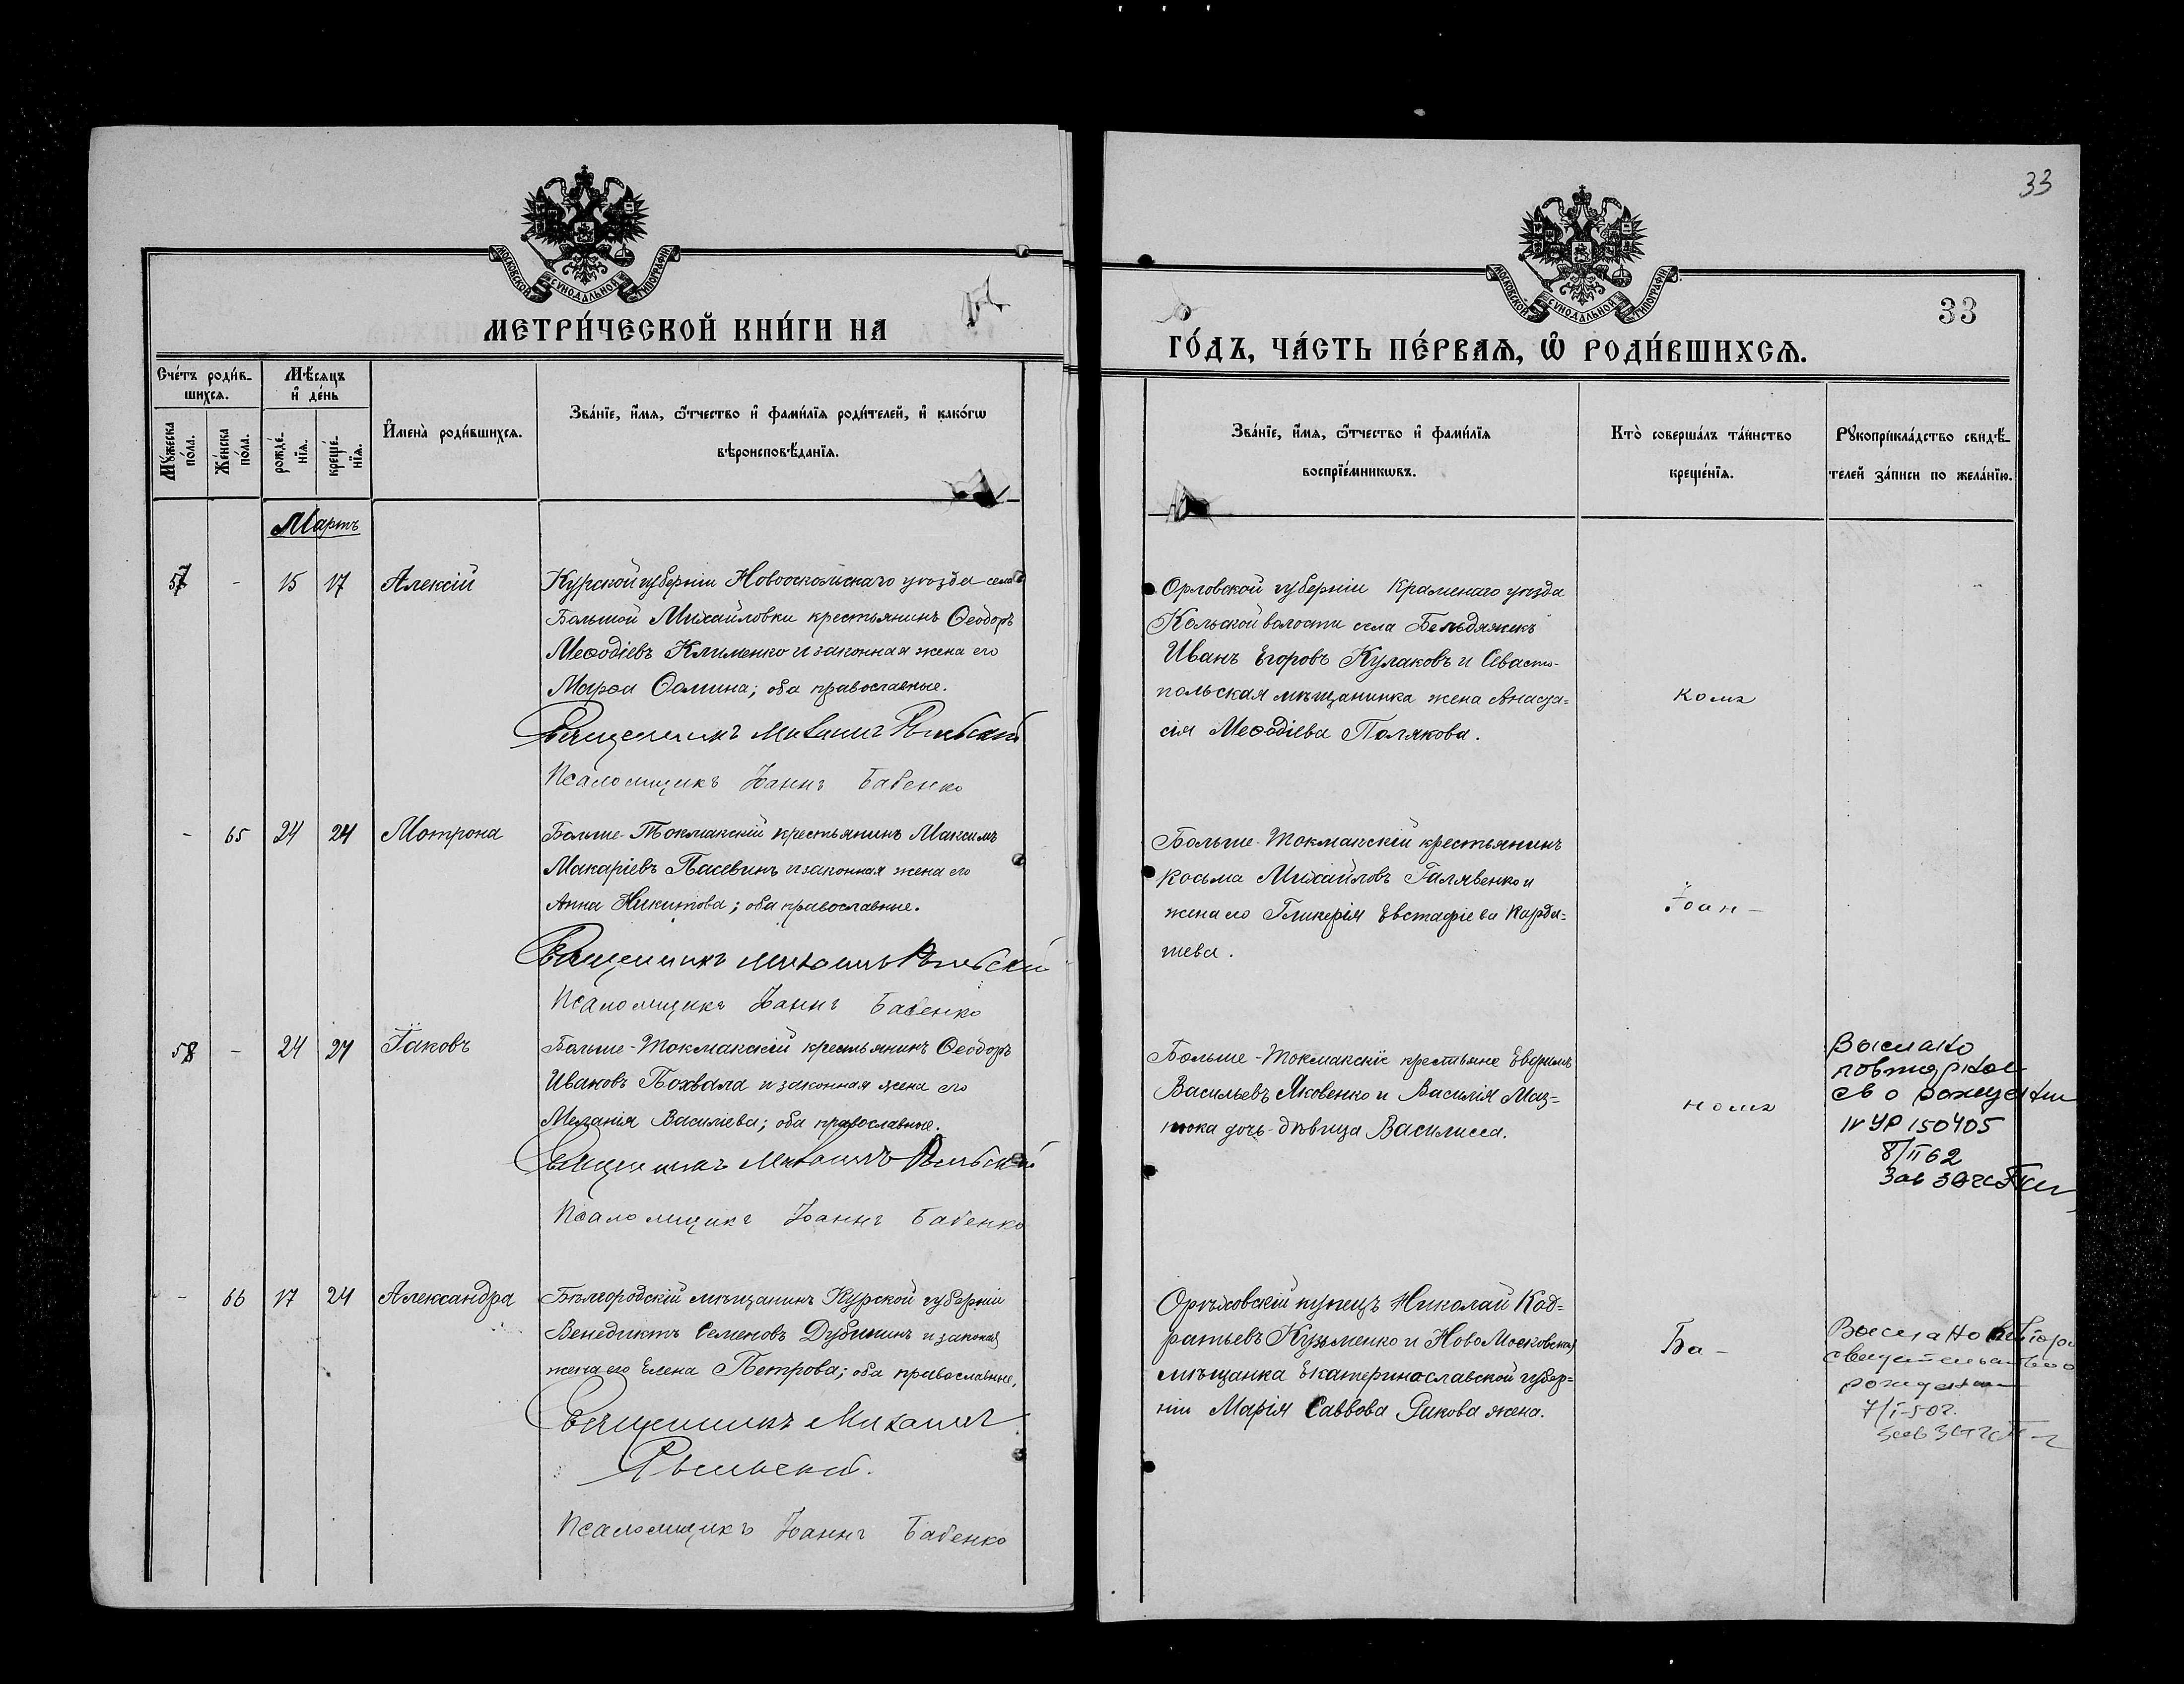 33
МОСКОВСКОЙ СУНОДАЛЬНОЙ ТИПОГРАФІИ
МЕТРИ́ЧЕСКОЙ КНИ́ГИ НА
Сче́тъ роди́в-
шихсѧ.
Мѣ́сѧцъ
и҆ де́нь
Мꙋ́жеска
по́ла.
Же́нска
по́ла.
рожде́-
нїѧ.
креще́-
нїѧ.
И҆мена̀ роди́вшихсѧ.
Зва́нїе, и҆́мѧ, ѻ҆́тчество и҆ фами́лїѧ роди́телей, и҆ како́гѡ
вѣроисповѣ́данїѧ.
Мартъ
57 - 15 17 Алексій
Курской губерніи Новооскольскаго уѣзда села
Большой Михайловки крестьянинъ Ѳеодоръ
Меѳодіевъ Клименко и законная жена его
Марѳа Ѳомина; оба православные.
Священникъ Михаилъ Рыльский
Псаломщикъ Іоаннъ Бабенко
- 65 24 24 Мотрона
Больше-Токмакскій крестьянинъ Максимъ
Макаріевъ Пасевинъ и законная жена его
Анна Никитова; оба православные.
Священникъ Михаилъ Рыльский
Псаломщикъ Іоаннъ Бабенко
58 - 24 24 Іаковъ
Больше-Токмакскій крестьянинъ Ѳеодоръ
Ивановъ Похвала и законная жена его
Меланія Василіева; оба православные.
Священникъ Михаилъ Рыльский
Псаломщикъ Іоаннъ Бабенко
- 66 17 24 Александра
Бѣлгородскій мѣщанинъ Курской губерніи
Венедиктъ Семеновъ Дубининъ и законная
жена его Елена Петрова; оба православные.
Священникъ Михаилъ
Рыльский.
Псаломщикъ Іоаннъ Бабенко
МОСКОВСКОЙ СУНОДАЛЬНОЙ ТИПОГРАФІИ
33
ГО́ДЪ, ЧА́СТЬ ПЕ́РВАѦ, Ѡ҆ РОДИ́ВШИХСѦ.
Зва́нїе, и҆́мѧ, ѻ҆́тчество и҆ фами́лїѧ
воспрїе́мникѡвъ.
Кто̀ соверша́лъ та́инство
креще́нїѧ.
Рꙋкоприкла́дство свидѣ́-
телей за́писи по жела́нїю.
Орловской губерніи Кромскаго уѣзда
Кольской волости села
Иванъ Егоровъ Кулаковъ и Севасто-
польская мѣщанинка жена Анаста-
сія Меѳодіева Полякова.
Больше-Токмакскій крестьянинъ
Косьма Михайловъ Галявенко и
жена его Гликерія Евстафіева Карда-
шева.
Іоан-
Больше-Токмакскіе крестьяне Евфимъ
Васильевъ Яковенко и Василія Маз-
нюка дочь-дѣвица Василисса.
Выслано
повторное
св о рождении
IV УР 150405
8/II 62
Зав ЗАГС
Орѣховскій купецъ Николай Код-
ратьевъ Кузьменко и НовоМосковская
мѣщанка Екатеринославской губер-
ніи Марія Саввова Ракова жена.
Ба-
Выслано повтор
свидетельство о
рождении
7/I-50г.
зав ЗАГС